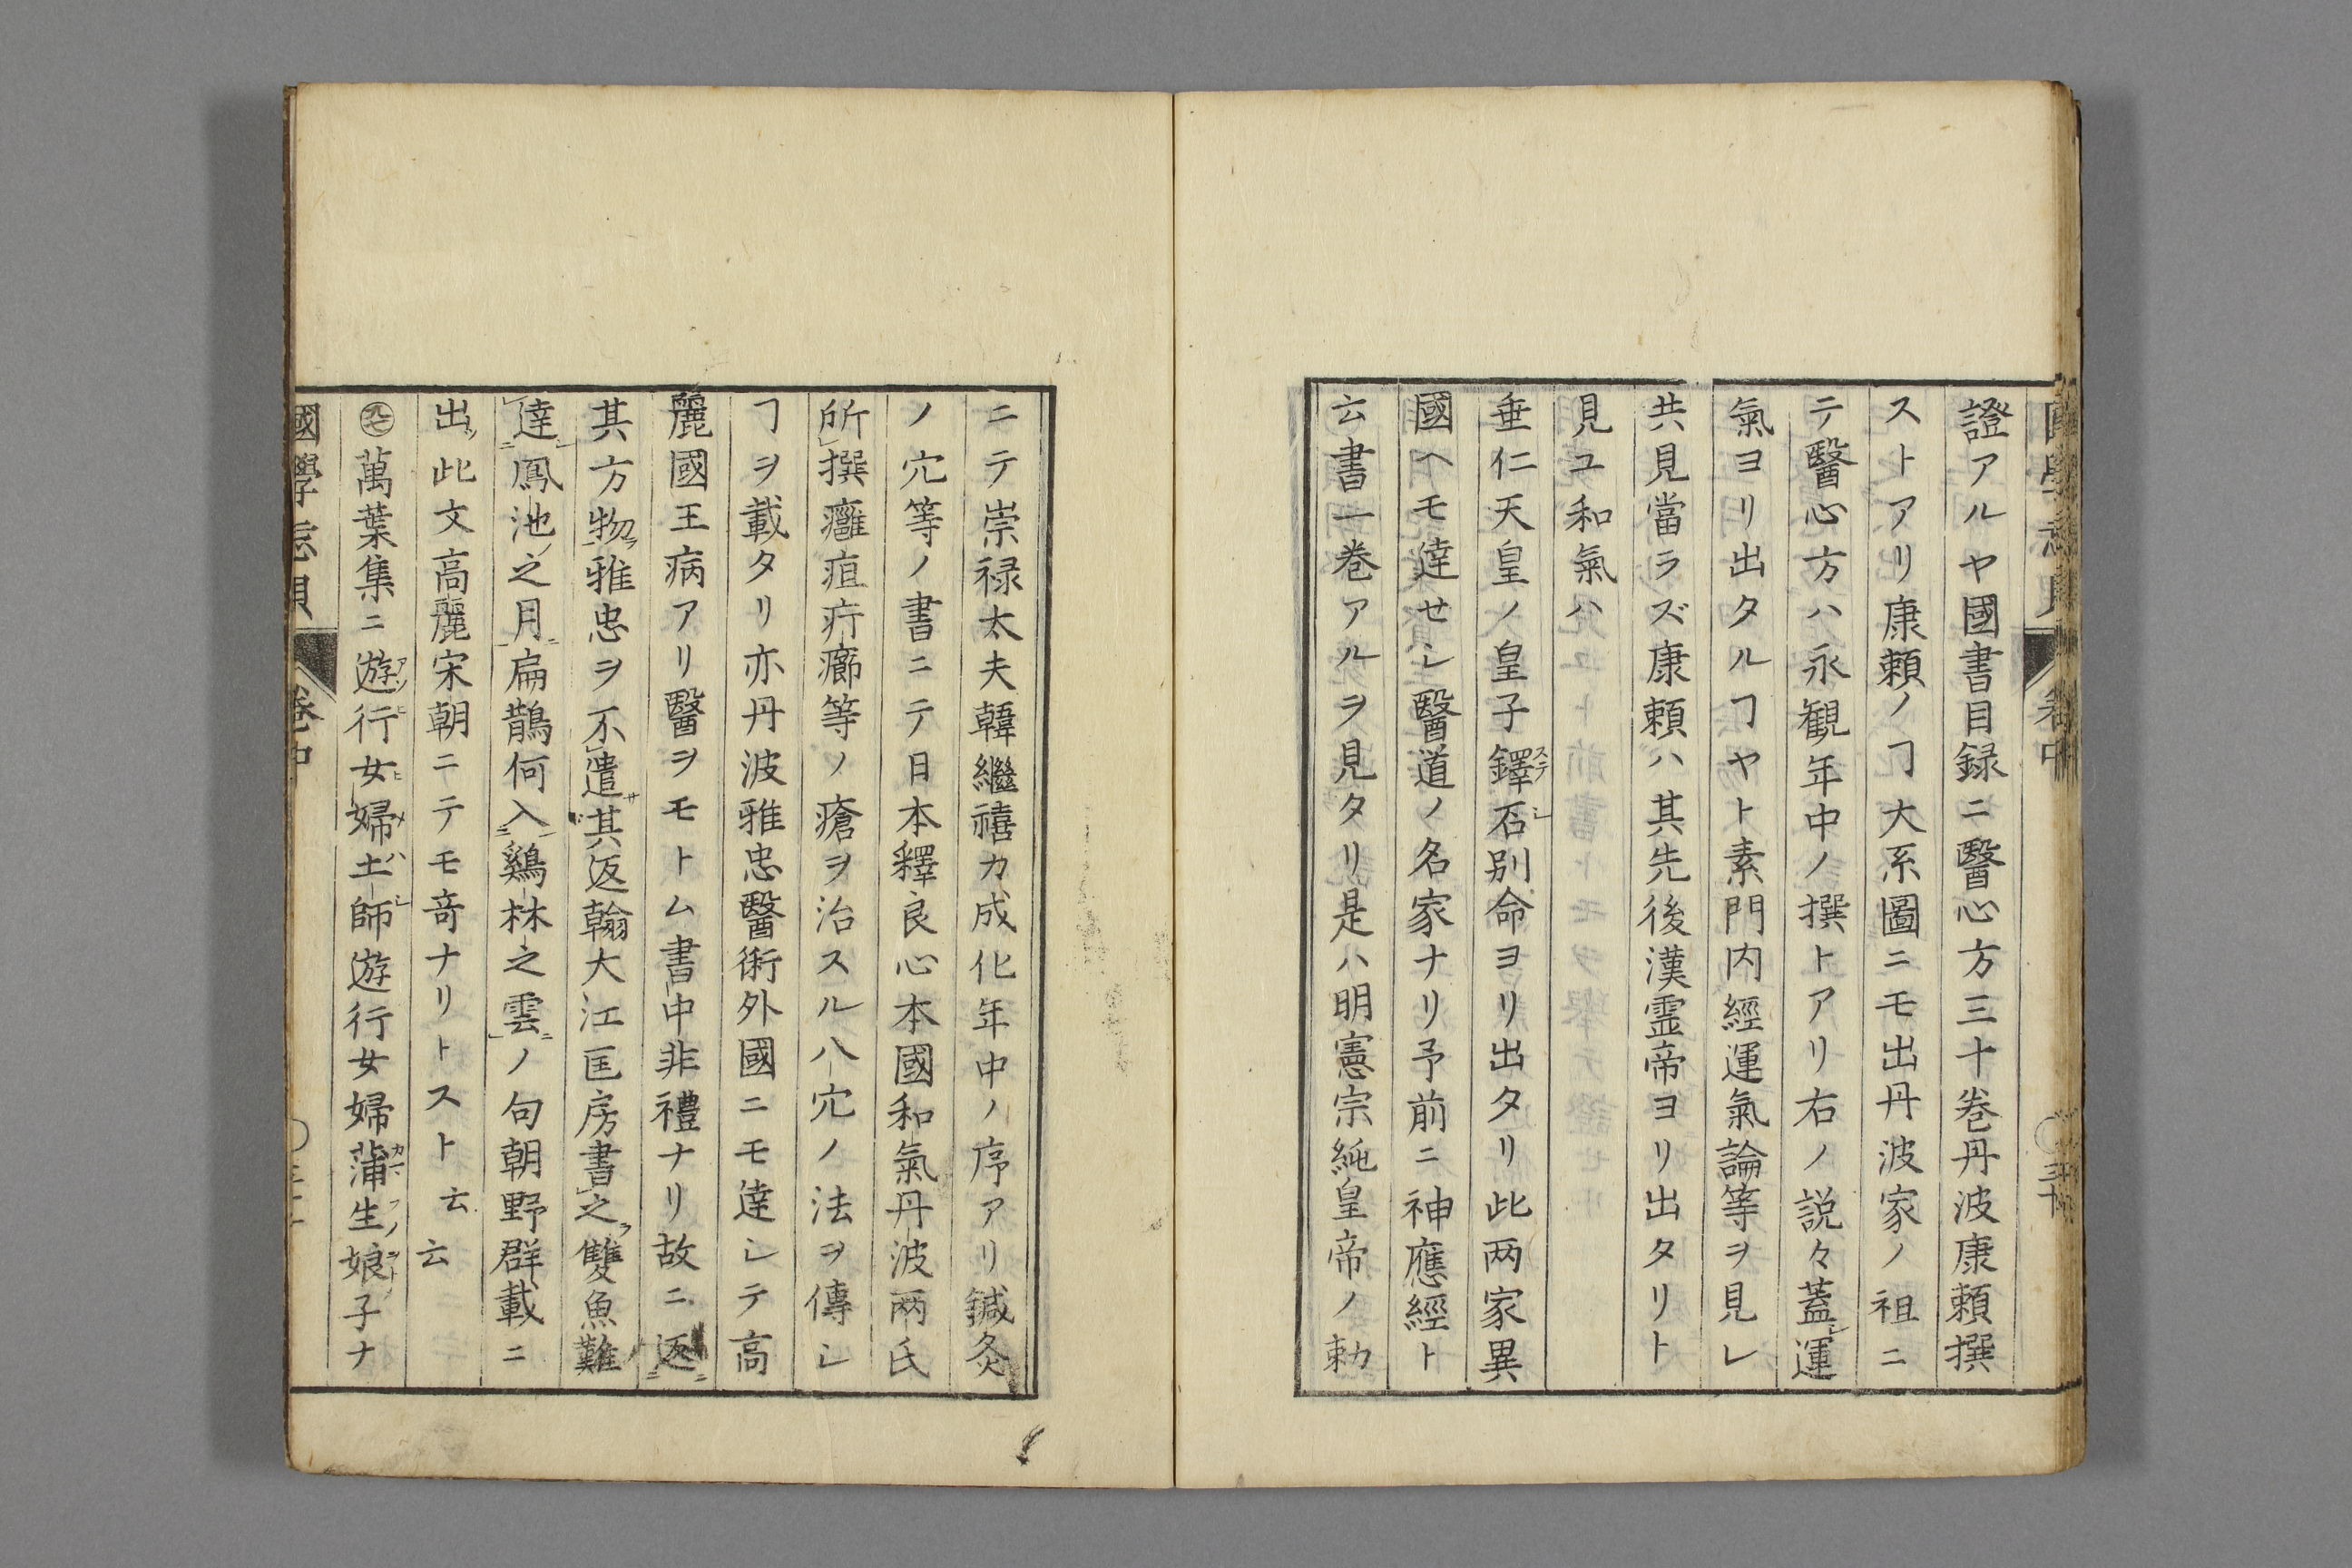 證アルヤ國書目録ニ醫心方三十巻丹波康頼撰
ストアリ康頼ノヿ大系圖ニモ出丹波家ノ祖ニ
テ醫心方ハ永観年中ノ撰トアリ右ノ説々蓋シ運
氣ヨリ出タルヿヤト素門内經運氣論等ヲ見レ
共見當ラズ康頼ハ其先後漢霊帝ヨリ出タリト
見ユ和氣ハ
垂仁天皇ノ皇子鐸石別命ヨリ出タリ此两家異
國ヘモ達せシ醫道ノ名家ナリ予前ニ神應經ト
云書一巻アルヲ見タリ是ハ明憲宗純皇帝ノ勅
ニテ崇禄太夫韓繼禧カ成化年中ノ序アリ鍼灸
ノ穴等ノ書ニテ日本釋良心本國和氣丹波两氏
所撰癰疽疔癤等ノ瘡ヲ治スル八穴ノ法ヲ傳シ
ヿヲ載タリ亦丹波雅忠醫術外國ニモ達シテ高
麗國王病アリ醫ヲモトム書中非禮ナリ故ニ返
其方物雅忠ヲ不遣其返翰大江匡房書之雙魚難
達鳳池之月扁鵲何入鷄林之雲ノ句朝野群載ニ
出此文高麗宋朝ニテモ竒ナリトスト云云
萬葉集ニ遊行女婦土師遊行女婦蒲生娘子ナ
國學忘貝 巻中